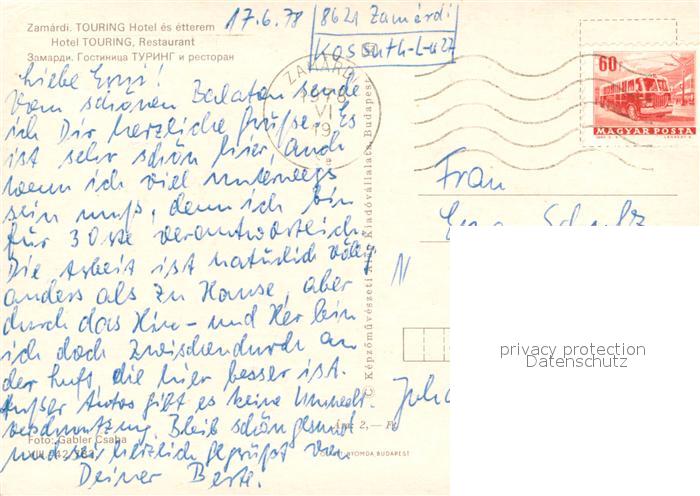 Zamárdi. TOURING Hotel és étterem
Hotel TOURING, Restaurant
Замарди. Гостиница ТУРИНГ и ресторан
17.6.78
8621 Zamárdi
Kossuth-L-u 22
Liebe Erni!
Vom schönen Balaton sende
ich Dir herzliche Grüße. Es
ist sehr schön hier, auch
wenn ich viel unterwegs
sein muß, denn ich bin
für 3 Orte verantwortlich.
Die Arbeit ist natürlich völlig
anders als zu Hause, aber
durch das Hin- und Her bin
ich doch zwischendurch an
der Luft, die hier besser ist.
Außer Autos gibt es keine Umwelt-
verschmutzung. Bleib schön gesund
und sei herzlich gegrüßt von
Deiner Beate.
Foto: Gabler Csaba
Ára: 2,— Ft
NYOMDA, BUDAPEST
© Képzőművészeti Alap Kiadóvállalata, Budapest
ZAMÁRDI
1978
VI
19
60f
MAGYAR POSTA
Frau
privacy protection
Datenschutz